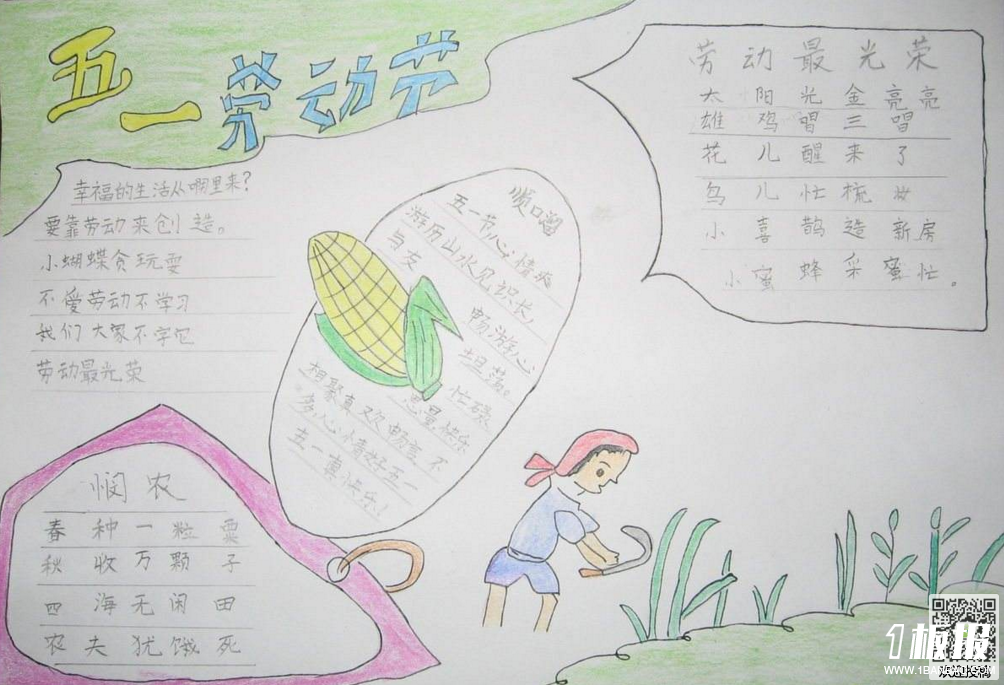 五一劳动节
幸福的生活从啊里来?
要靠劳动来创造。
小蝴蝶贪玩耍
不爱劳动不学习
我们大家不学它
劳动最光荣
顺口溜
五一节,心情爽
游历山水见识长,
与友
畅游心
坦荡。
忙碌
总是快乐
相聚真欢畅 不
多,心情好五一
五一 快乐!
劳动最光荣
太阳光金亮亮
雄鸡唱三唱
花儿醒来了
鸟儿忙梳妆
小喜鹊造新房
小蜜蜂采蜜忙。
悯农
春种一粒粟
秋收万颗子
四海无闲田
农夫犹饿死
1板报
WWW.1BANBAO.COM
欢迎投稿